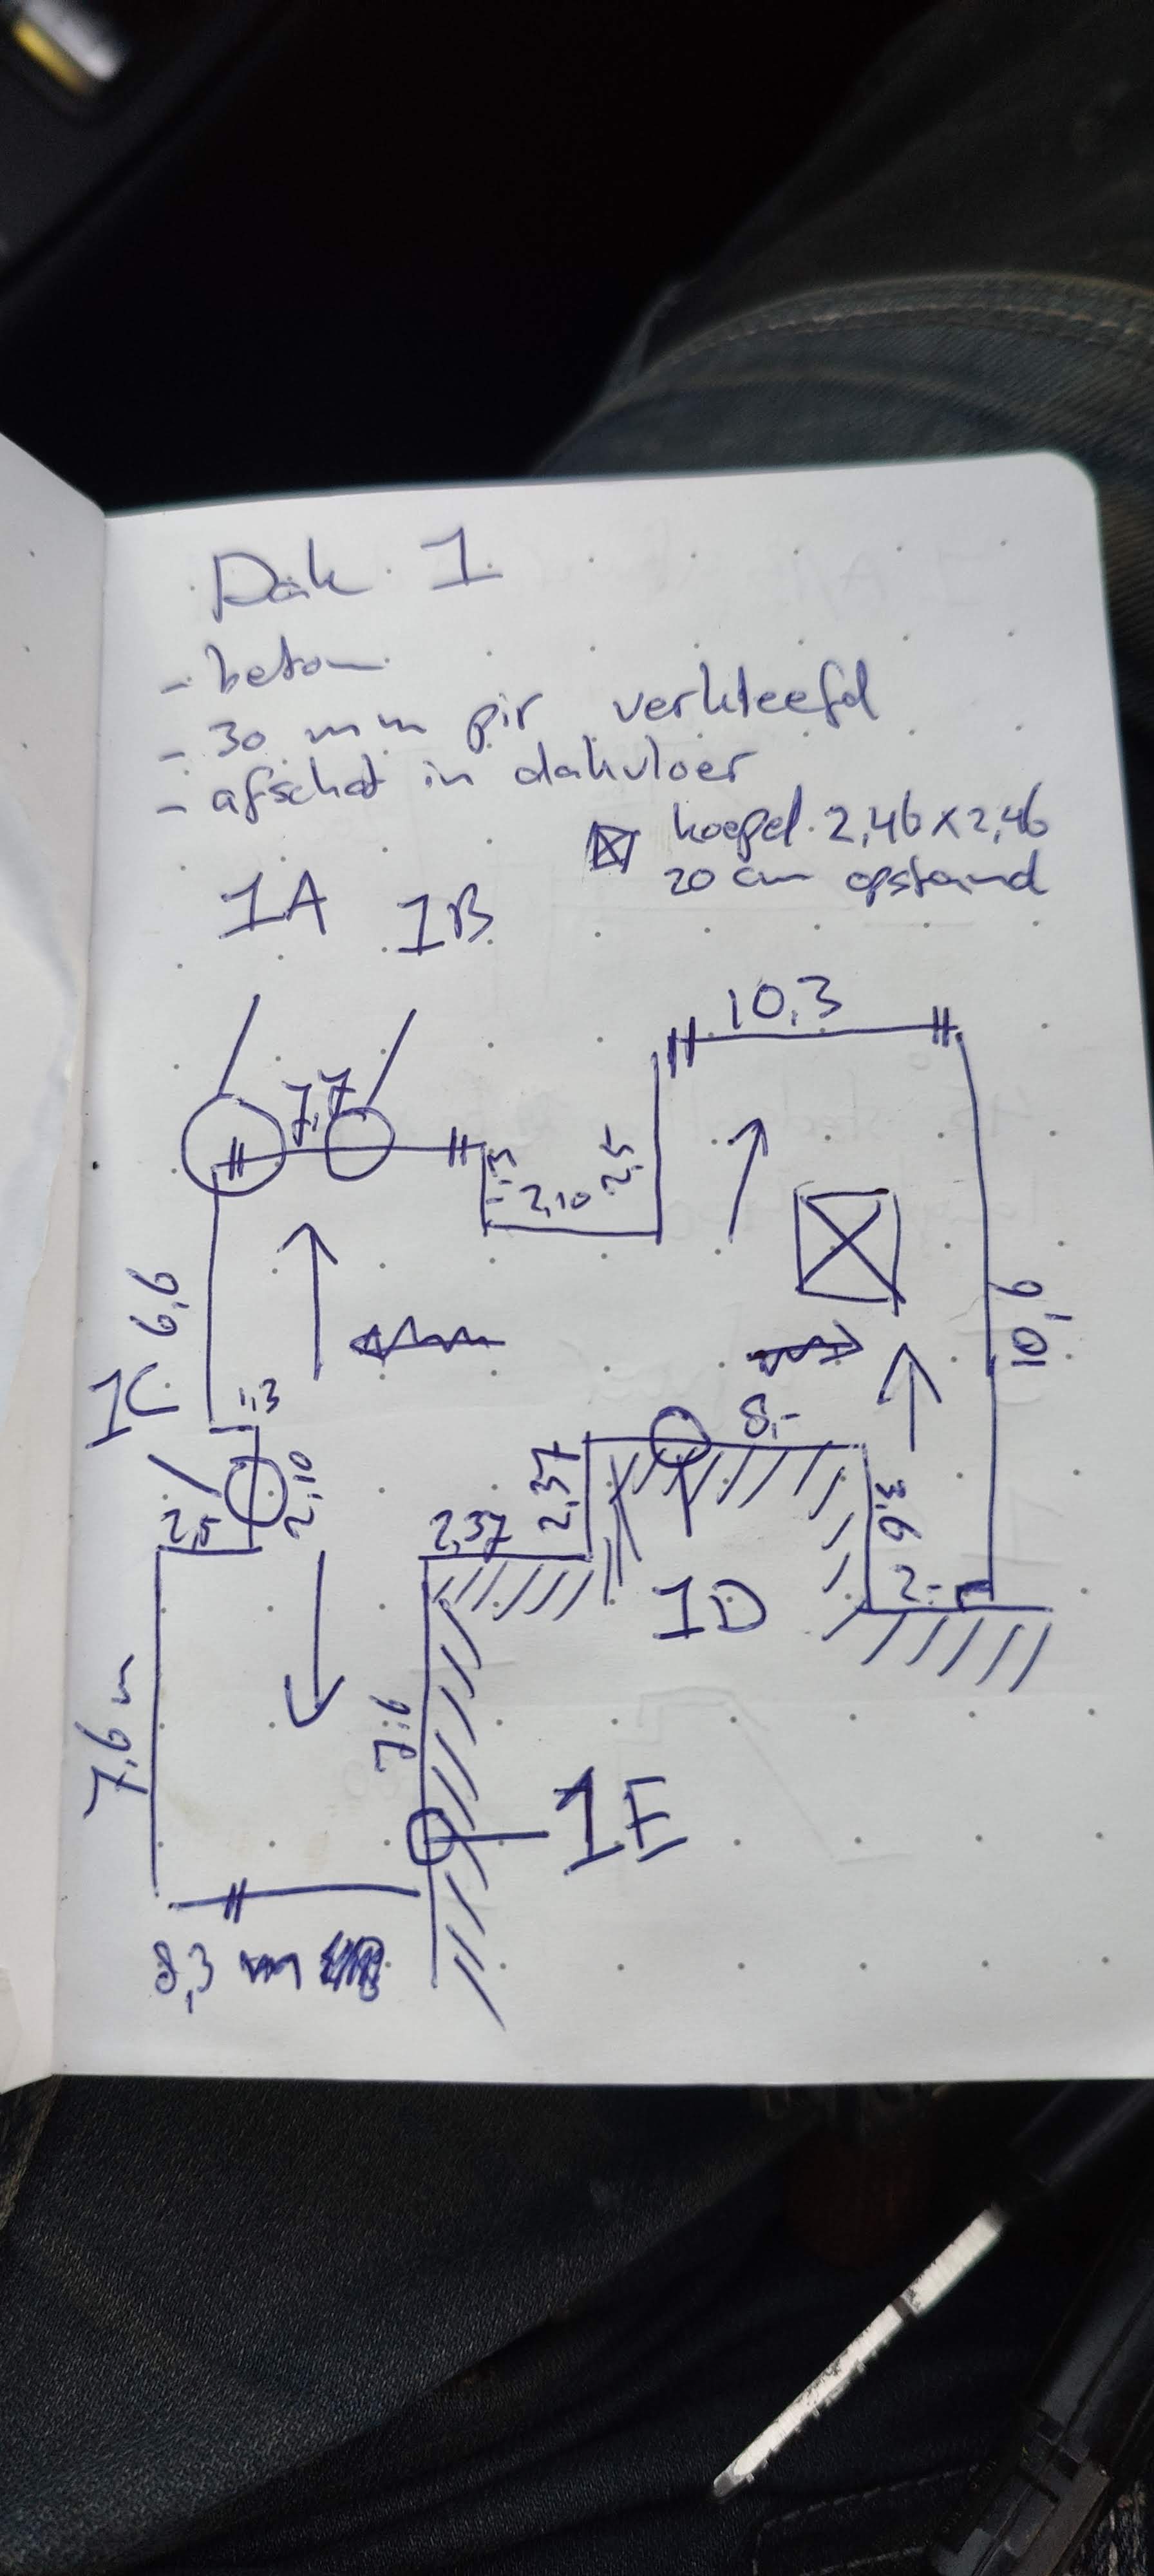 Dak 1
- beton
- 30 mm pir verkleefd
- afschot in dakvloer
koepel 2,46 x 2,46
20 cm opstand
1A 1B
10,3
7,7
1,3
2,10
2,5
6,6
1C
10,9
1,3
8,-
2,10
2,5
2,37
2,37
3,6
2,-
1D
7,6 m
7,6
1E
8,3 m